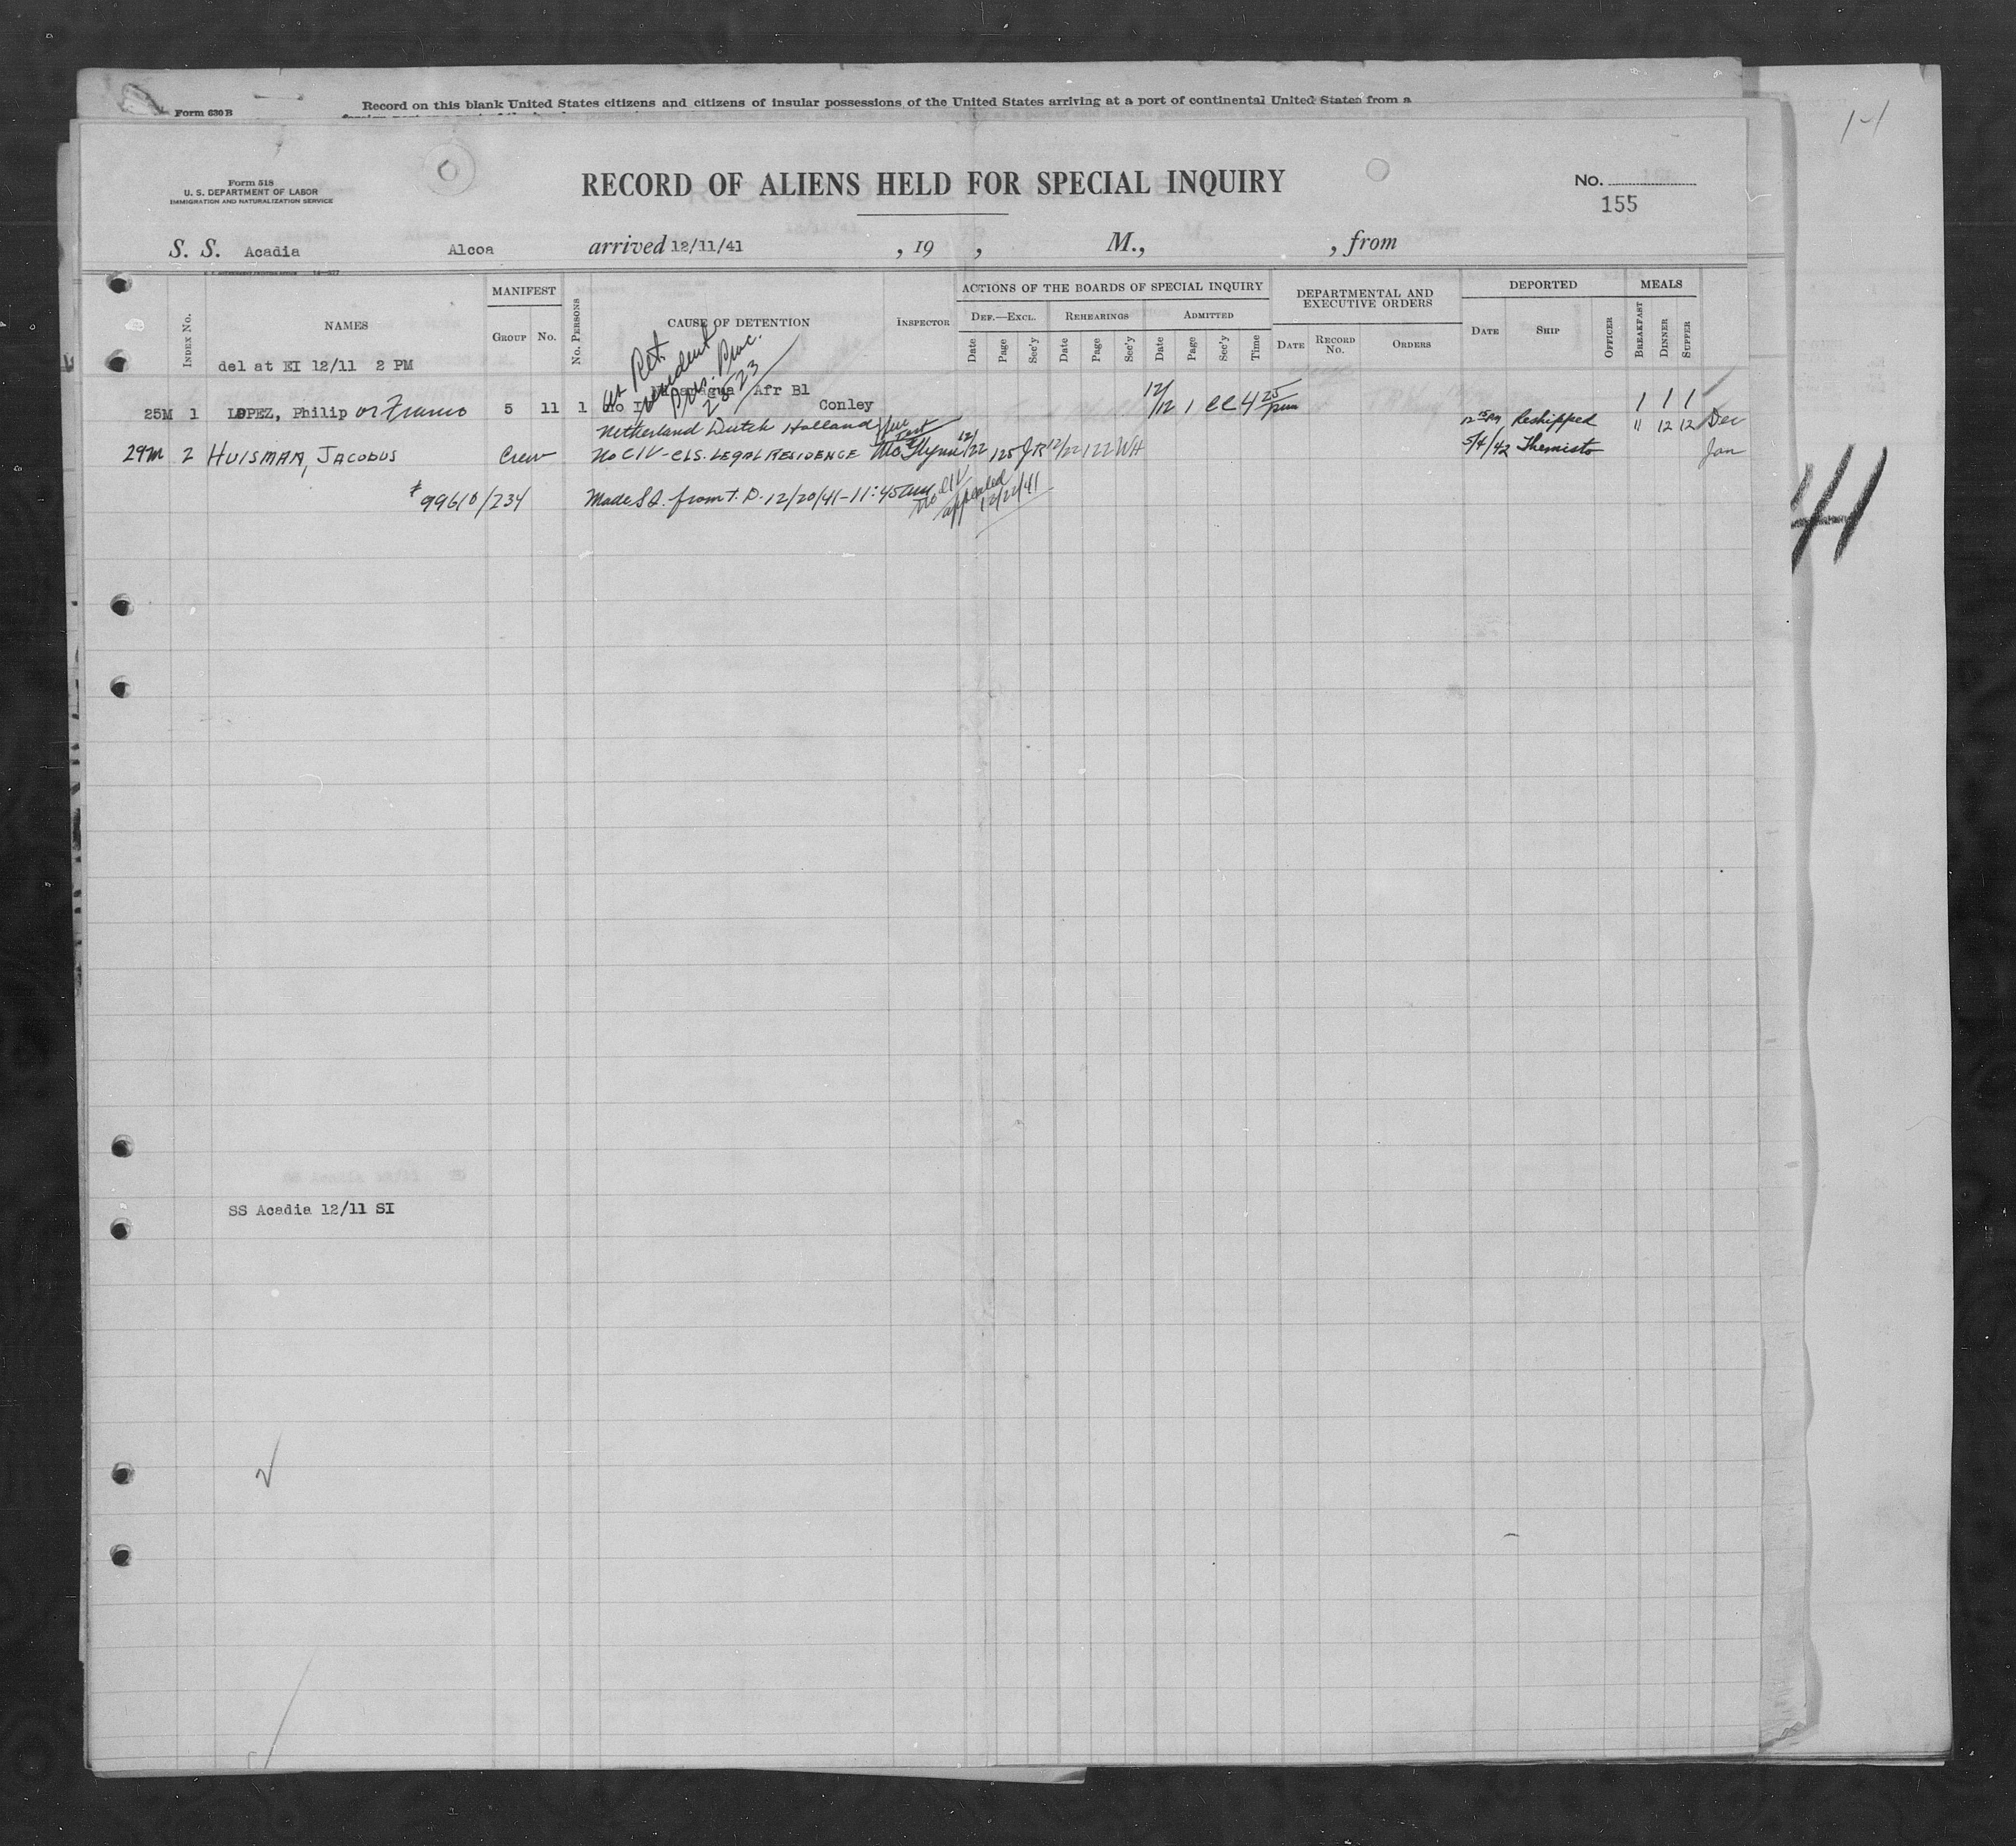 Form 630 B
Record on this blank United States citizens and citizens of insular possessions of the United States arriving at a port of continental United States from a
14
Form 518
U. S. DEPARTMENT OF LABOR
IMMIGRATION AND NATURALIZATION SERVICE
RECORD OF ALIENS HELD FOR SPECIAL INQUIRY
No.
155
S. S. Acadia Alcoa arrived 12/11/41 , 19 , M., , from
INDEX No.
NAMES
MANIFEST
GROUP No.
No. PERSONS
CAUSE OF DETENTION
INSPECTOR
ACTIONS OF THE BOARDS OF SPECIAL INQUIRY
DEF.—EXCL. REHEARINGS ADMITTED
Date Page Sec'y Date Page Sec'y Date Page Sec'y Time
DEPARTMENTAL AND
EXECUTIVE ORDERS
DATE RECORD No. ORDERS
DEPORTED
DATE SHIP OFFICER
MEALS
BREAKFAST DINNER SUPPER
del at EI 12/11 2 PM
Ret.
resident
Prus. Proc.
2523
Afr Bl
25M 1 LOPEZ, Philip or Franco 5 11 1 No I Conley 12/12 1 CC 4 25 pm 1 1 1
Netherland Dutch Holland 12 15 AM Reshipped 11 12 12 Dec
29M 2 HUISMAN, JACOBUS Crew No CIV - CLS. LEGAL RESIDENCE McGlynn 12/22 125 JR 12/22 122 WH 5/4/42 Themisto Jan
# 99610/234 Made S.I. from T.D. 12/20/41 - 11:45 AM No CIV
appealed
12/22/41
41
SS Acadia 12/11 SI